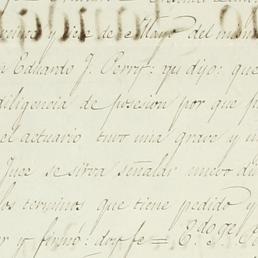 y siete de Mayo del mism
n Eduardo J. Perry: y dijo: que
diligencia de posesion por que p
el actuario tuvo una grave y u
Juez se sirva señalar nuevo dia
los terminos que tiene pedido y
ar y firmó: doy fe = E. J.